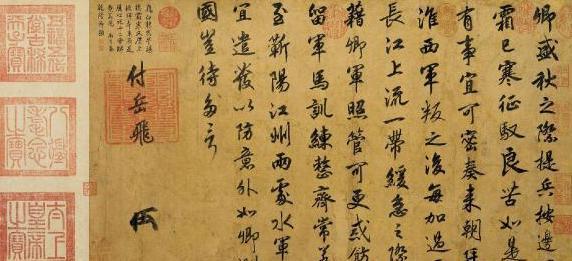 卿盛秋之際提兵按邊
霜已寒征馭良苦如是
有事宜可密奏來朝
淮西軍叛之後每加過
長江上流一帶緩急之際
藉卿軍照管可更戒飭
留軍馬訓練整齊常若
至蘄陽江州兩處水軍
宜遣發以防意外如卿
國豈待多言
付岳飛
八徵耄念之寶
太上皇帝之寶